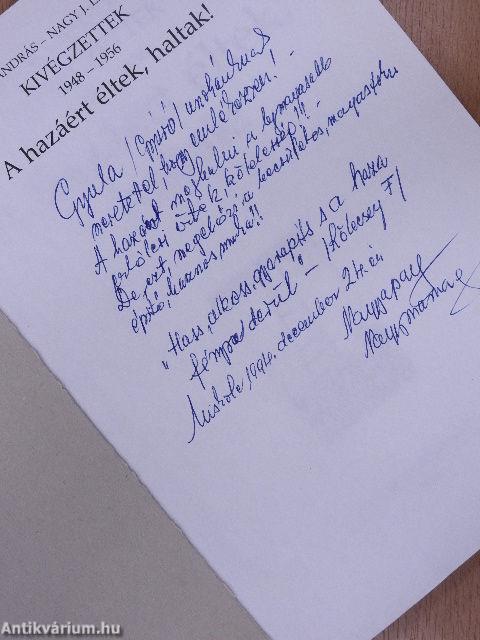 ANDRÁS – NAGY J.
KIVÉGZETTEK
1948 – 1956
A hazáért éltek, haltak!
Gyula unokánknak
szeretettel, hogy emlékezzen! –
A hazáért meghalni a legmagasabb
erkölcsi kötelesség!! –
De ezt megelőzi a becsületes, magasztos
építő, hasznos munka!!
"Hass, alkoss, gyarapíts s a haza
fényre derül" – /Kölcsey F/
Miskolc 1994. december 24.én
Nagyapa
Nagymama
Antikvárium.hu